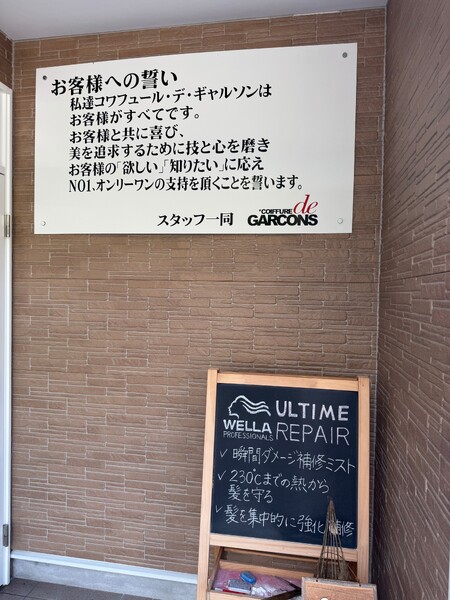 お客様への誓い
私達コワフュール・デ・ギャルソンは
お客様がすべてです。
お客様と共に喜び、
美を追求するために技と心を磨き
お客様の「欲しい」「知りたい」に応え
NO1、オンリーワンの支持を頂くことを誓います。
スタッフ一同 COIFFURE de GARCONS
WELLA PROFESSIONALS
ULTIME REPAIR
✓ 瞬間ダメージ補修ミスト
✓ 230℃までの熱から
髪を守る
✓ 髪を集中的に強化補修